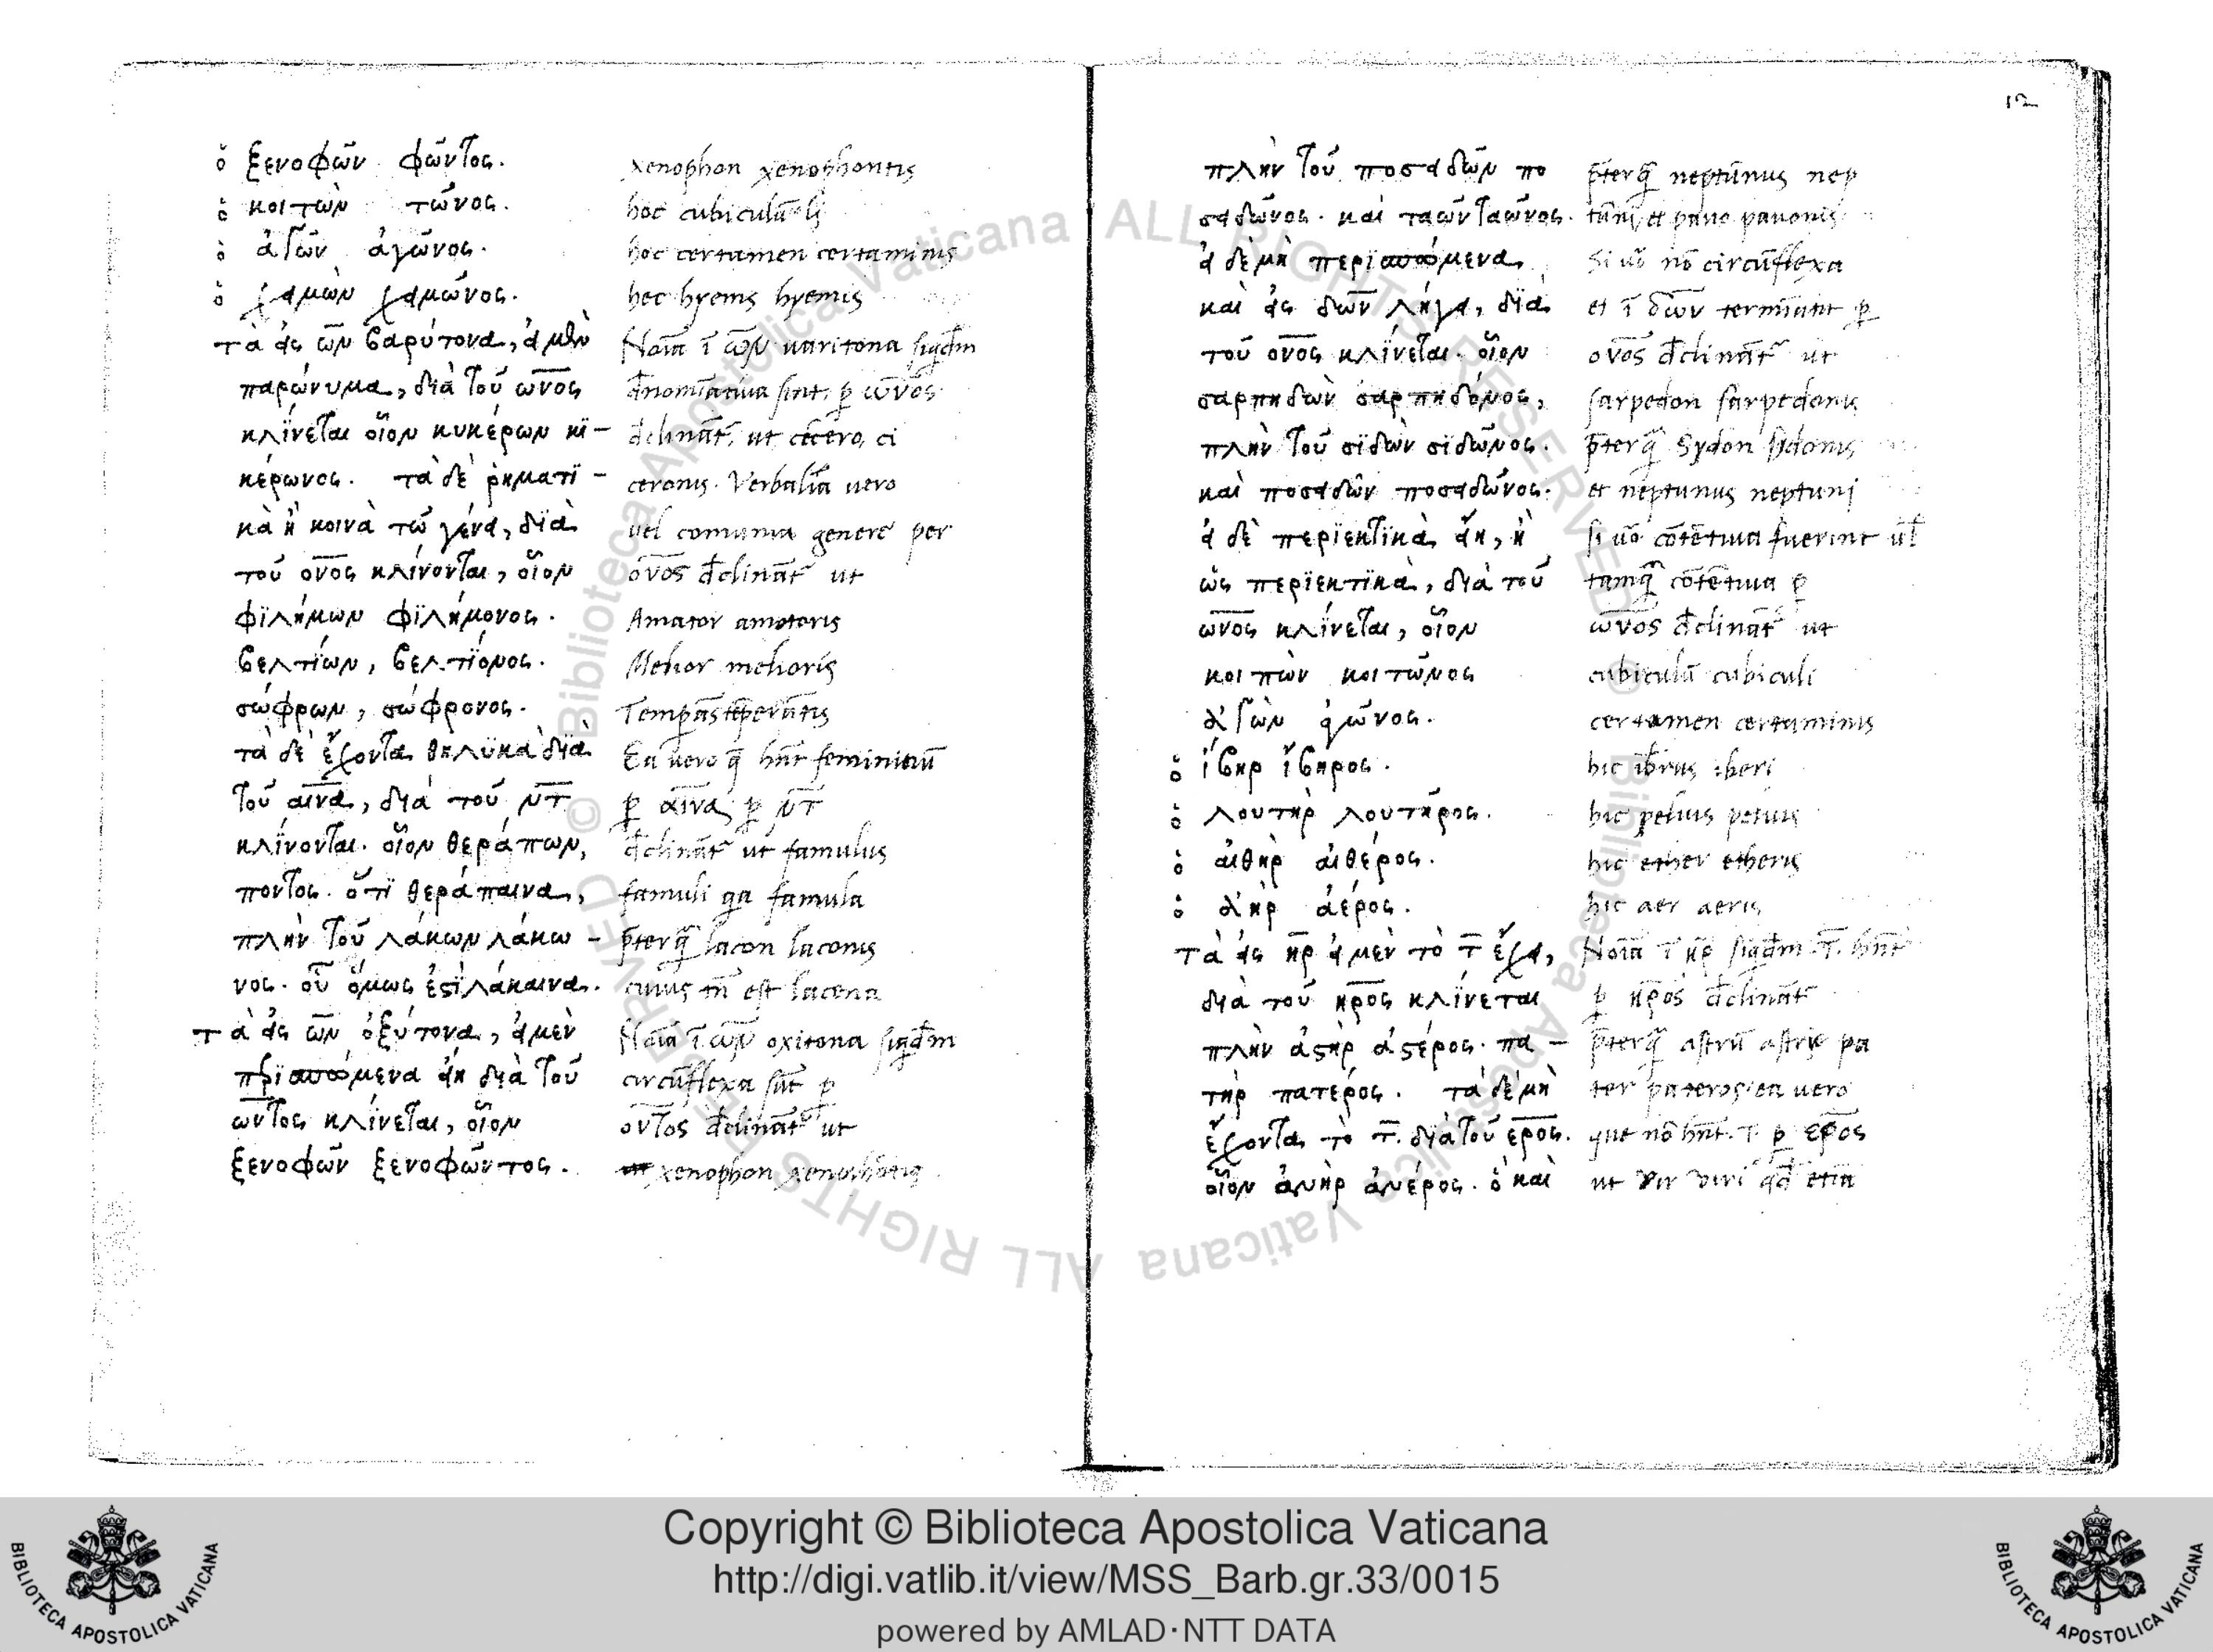 12
ὁ ξενοφῶν φῶντος. xenophon xenophontis
ὁ κοιτὼν τῶνος. hoc cubiculū li
ὁ ἀγῶν ἀγῶνος. hoc certamen certaminis
ὁ χειμὼν χειμῶνος. hec hyems hyemis
τὰ εἰς ων βαρύτονα, εἰ μὲν Noīa ī ων varitona siqđm
παρώνυμα, διὰ τοῦ ωνος đnomīatiua sint, ꝑ ωνος
κλίνεται οἷον κικέρων κι- đclinātr, ut cicero, ci
κέρωνος. τὰ δὲ ῥηματι- ceronis. Verbalia uero
κὰ ἢ κοινὰ τῶ γένει, διὰ uel comunia genere per
τοῦ ονος κλίνονται, οἷον ονος đclinātr ut
φιλήμων φιλήμονος. Amator amatoris
βελτίων, βελτίονος. Melior melioris
σώφρων, σώφρονος. Temperās temperātis
τὰ δὲ ἔχοντα θηλυκὰ διὰ Ea uero q̄ hn̄t femininū
τοῦ αινα, διὰ τοῦ ντ ꝑ αινα, ꝑ ντ
κλίνονται. οἷον θεράπων, đclinātr ut famulus
ποντος. ὅτι θεράπαινα, famuli qa famula
πλὴν τοῦ λάκων λάκω- p̄terq̄ lacon laconis
νος. οὗ ὅμως ἐστὶ λάκαινα. cuius tn̄ est lacena
τὰ εἰς ων ὀξύτονα, εἰ μὲν Noīa ī ων oxitona siqđm
περισπώμενα εἴη διὰ τοῦ circūflexa sūt ꝑ
ωντος κλίνεται, οἷον οντος đclinātr ut
ξενοφῶν ξενοφῶντος. xenophon xenophōtis
πλὴν τοῦ ποσειδῶν πο p̄terq̄ neptūnus nep
σειδῶνος. καὶ ταῶν ταῶνος. tūni, et pauo pauonis
εἰ δὲ μὴ περισπώμενα, Si uō nō circūflexa
καὶ εἰς δων λήγει, διὰ et ī δων terminātr ꝑ
τοῦ ονος κλίνεται. οἷον ονος đclinātr ut
σαρπηδὼν σαρπηδόνος, sarpedon sarpedonis
πλὴν τοῦ σιδὼν σιδῶνος. p̄terq̄ Sydon sydonis
καὶ ποσειδῶν ποσειδῶνος. et neptunus neptuni
εἰ δὲ περιεκτικὰ εἴη, ἢ si uō cōtētiua fuerint ul̄
ὡς περιεκτικὰ, διὰ τοῦ tamq̄ cōtētiua ꝑ
ωνος κλίνεται, οἷον ωνος đclinātr ut
κοιτὼν κοιτῶνος cubiculū cubiculi
ἀγὼν ἀγῶνος. certamen certaminis
ὁ ἴβηρ ἴβηρος. hic iberus iberi
ὁ λουτὴρ λουτῆρος. hic peluis peluis
ὁ αἰθὴρ αἰθέρος. hic ether etheris
ὁ ἀὴρ ἀέρος. hic aer aeris
τὰ εἰς ηρ εἰ μὲν τὸ τ ἔχει, Noīa ī ηρ siqđm τ. hn̄t
διὰ τοῦ ηρος κλίνεται ꝑ ηρος đclinātr
πλὴν ἀστὴρ ἀστέρος. πα- p̄terq̄ astrū astri pa
τὴρ πατέρος. τὰ δὲ μὴ ter pateros. ea uero
ἔχοντα τὸ τ. διὰ τοῦ ερος. que nō hn̄t. τ. ꝑ ερος
οἷον ἀνὴρ ἀνέρος. ὃ καὶ ut vir viri qđ etiā
© Biblioteca Apostolica Vaticana ALL RIGHTS RESERVED
Copyright © Biblioteca Apostolica Vaticana
http://digi.vatlib.it/view/MSS_Barb.gr.33/0015
powered by AMLAD·NTT DATA
BIBLIOTECA APOSTOLICA VATICANA
BIBLIOTECA APOSTOLICA VATICANA